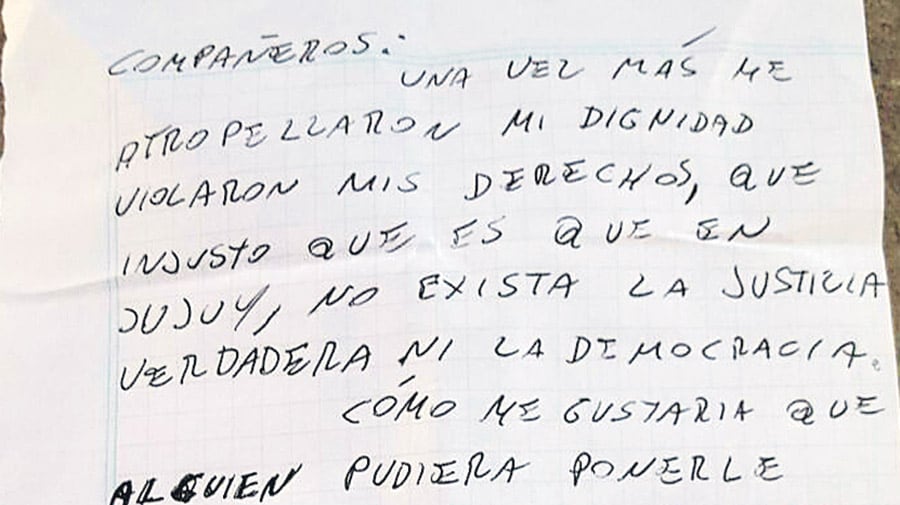 COMPAÑEROS:
UNA VEZ MÁS ME
ATROPELLARON MI DIGNIDAD
VIOLARON MIS DERECHOS, QUE
INJUSTO QUE ES QUE EN
JUJUY, NO EXISTA LA JUSTICIA
VERDADERA NI LA DEMOCRACIA.
CÓMO ME GUSTARIA QUE
ALGUIEN PUDIERA PONERLE